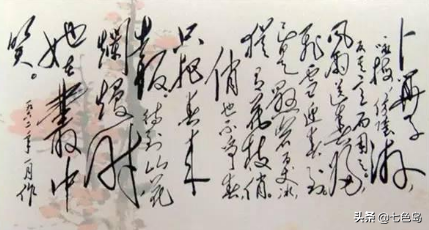 卜算子
咏梅
反其意而用之
风雨送春归
飞雪迎春到
已是悬崖百丈冰
犹有花枝俏。
俏也不争春
只把春来
报 待到山花
爛熳时
她在叢中
笑。
一九六二年一月作
头条 @七色岛